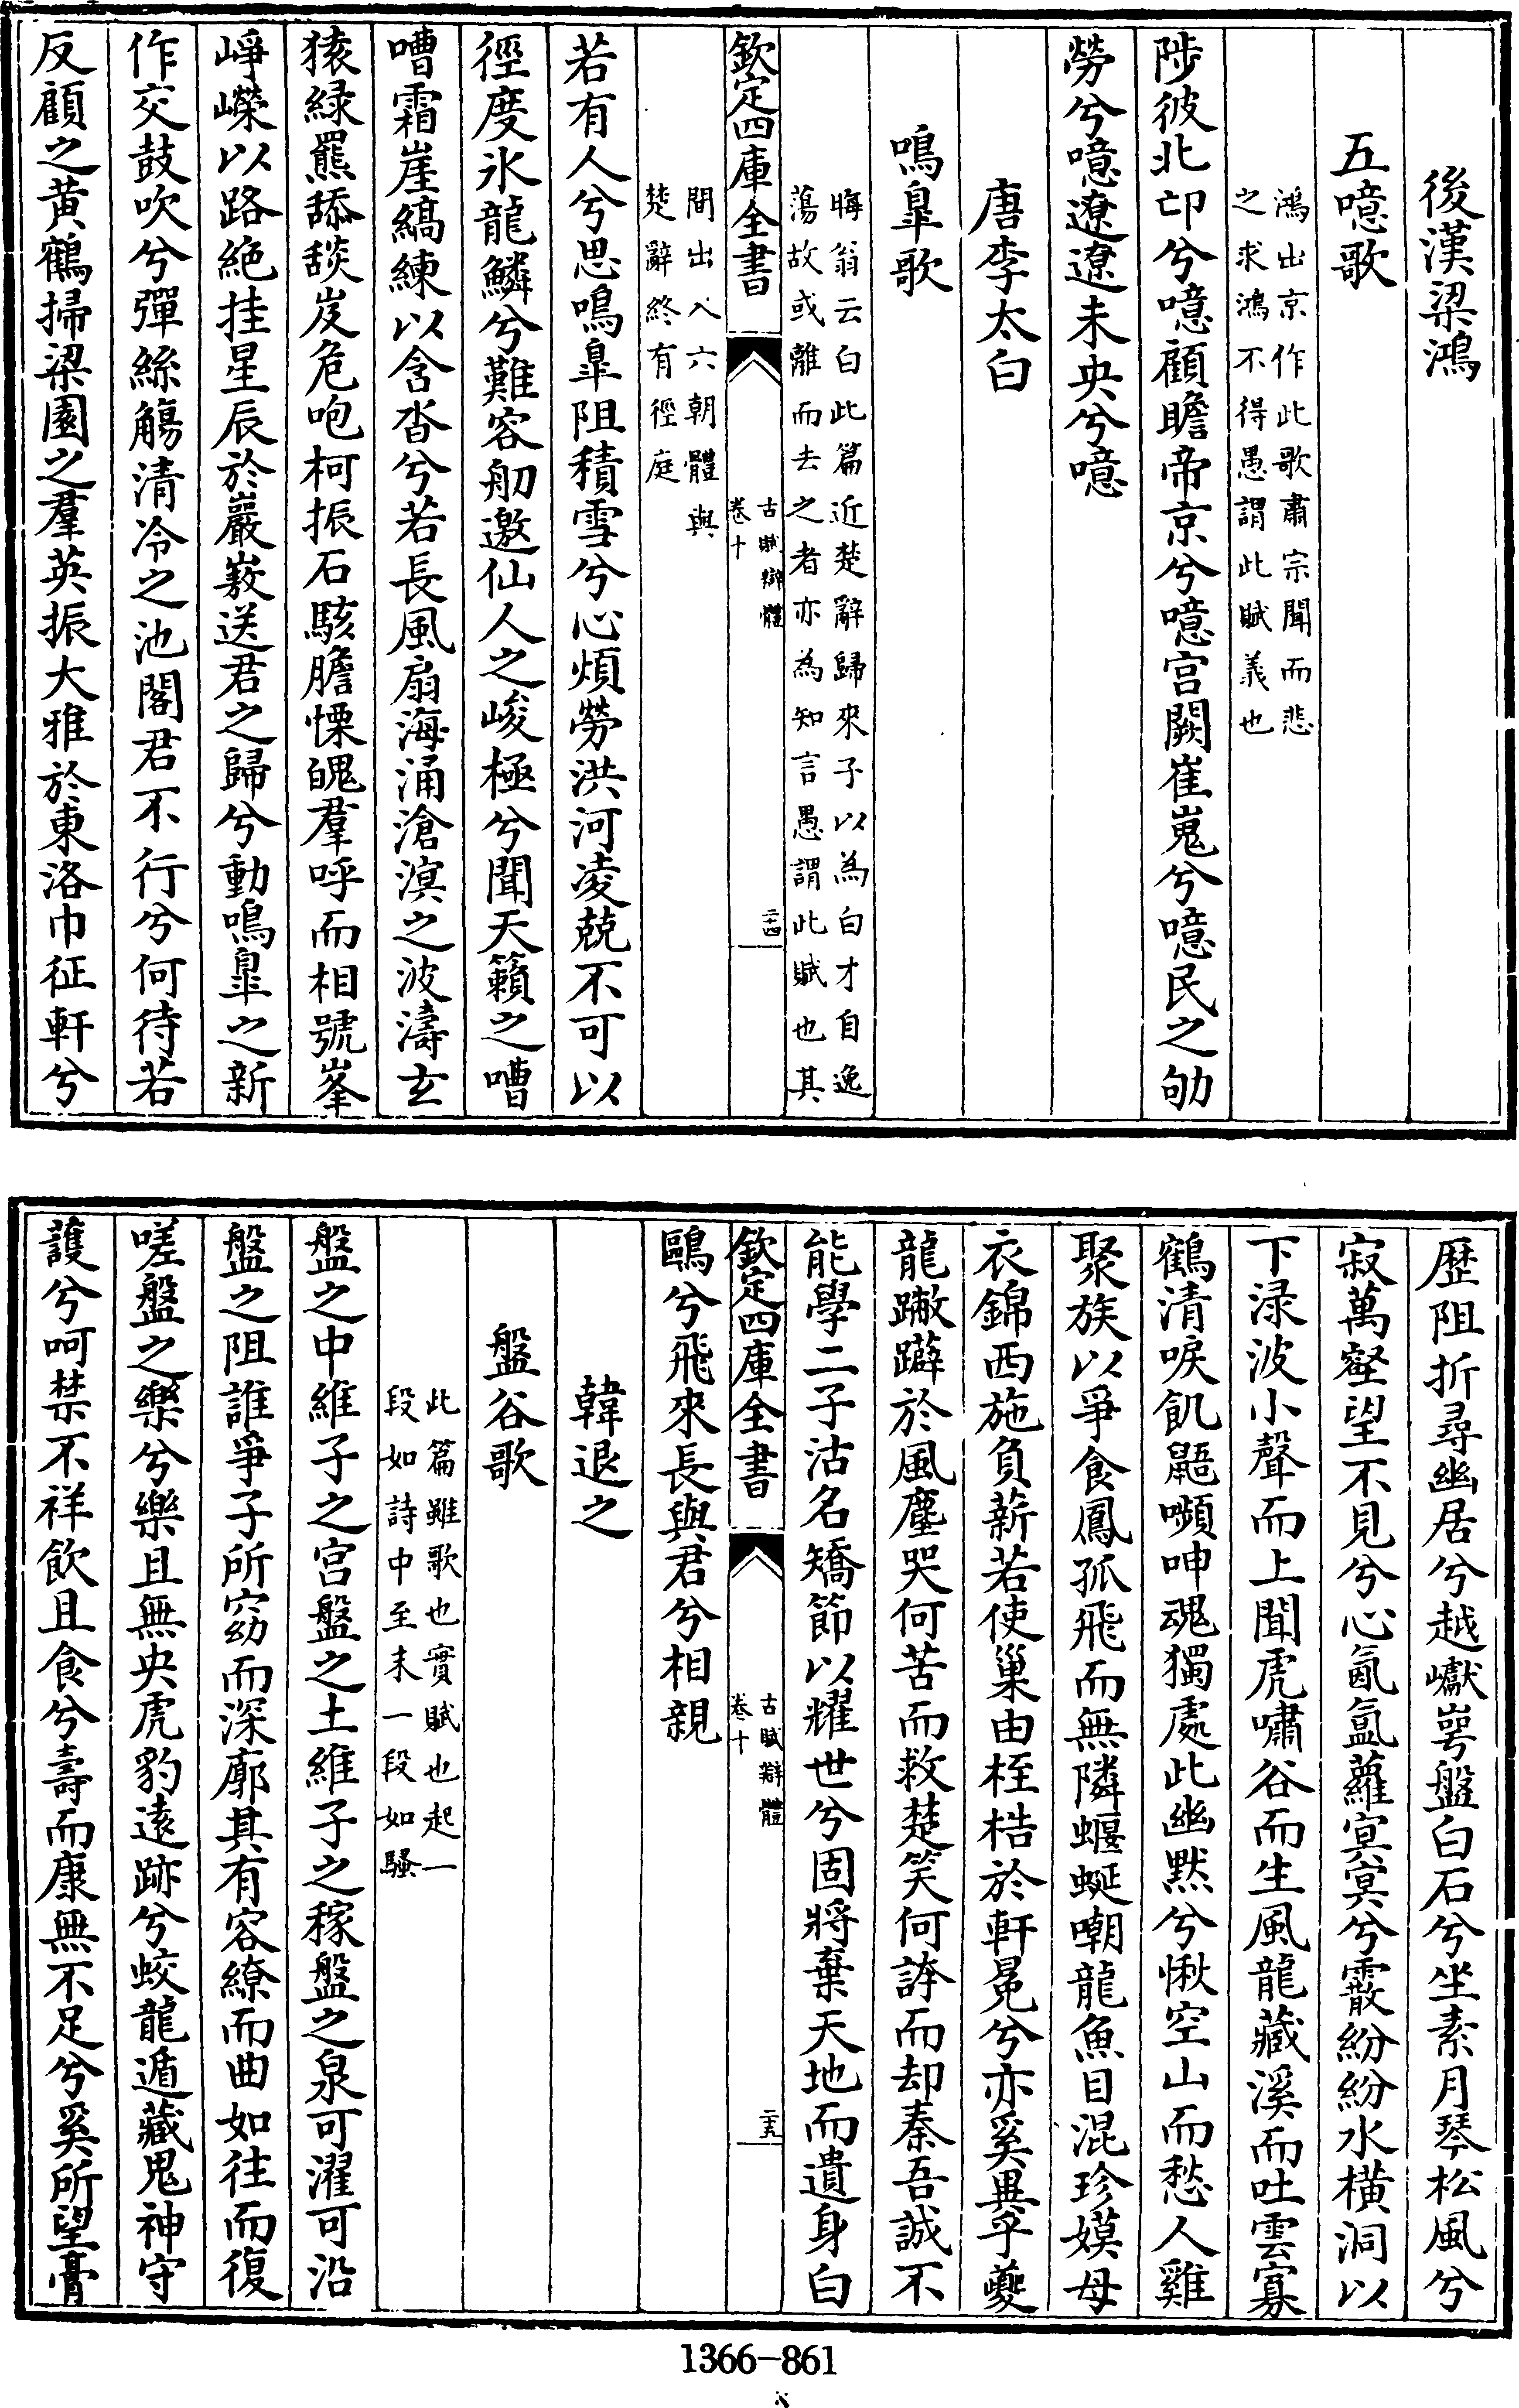 後漢梁鴻
五噫歌
鴻出京作此歌肅宗聞而悲
之求鴻不得愚謂此賦義也
陟彼北邙兮噫顧瞻帝京兮噫宫闕崔嵬兮噫民之劬
勞兮噫遼遼未央兮噫
唐李太白
鳴臯歌
晦翁云白此篇近楚辭歸來子以為白才自逸
蕩故或離而去之者亦為知言愚謂此賦也其
欽定四庫全書
古賦辯體
卷十
二十四
間出入六朝體與
楚辭終有徑庭
若有人兮思鳴臯阻積雪兮心煩勞洪河凌兢不可以
徑度氷龍鱗兮難容舠邀仙人之峻極兮聞天籟之嘈
嘈霜崖縞練以含沓兮若長風扇海涌滄溟之波濤玄
猿緑羆舔舕岌危咆柯振石駭膽慄魄羣呼而相號峯
崢嶸以路絶挂星辰於巖嶅送君之歸兮動鳴臯之新
作交鼓吹兮彈絲觴清冷之池閣君不行兮何待若
反顧之黄鶴掃梁園之羣英振大雅於東洛巾征軒兮
歴阻折尋幽居兮越巘崿盤白石兮坐素月琴松風兮
寂萬壑望不見兮心氤氲蘿㝠㝠兮霰紛紛水横洞以
下渌波小聲而上聞虎嘯谷而生風龍藏溪而吐雲寡
鶴清唳飢鼯嚬呻魂獨處此幽黙兮愀空山而愁人雞
聚族以爭食鳳孤飛而無隣蝘蜓嘲龍魚目混珍嫫母
衣錦西施負薪若使巢由桎梏於軒冕兮亦奚異乎夔
龍蹩躠於風塵哭何苦而救楚笑何誇而却秦吾誠不
能學二子沽名矯節以耀世兮固將棄天地而遺身白
欽定四庫全書
古賦辯體
卷十
二十五
鷗兮飛來長與君兮相親
韓退之
盤谷歌
此篇雖歌也實賦也起一
段如詩中至末一段如騷
盤之中維子之宫盤之土維子之稼盤之泉可濯可沿
盤之阻誰爭子所窈而深廓其有容繚而曲如往而復
嗟盤之樂兮樂且無央虎豹遠跡兮蛟龍遁藏鬼神守
護兮呵禁不祥飲且食兮壽而康無不足兮奚所望膏
1366-861